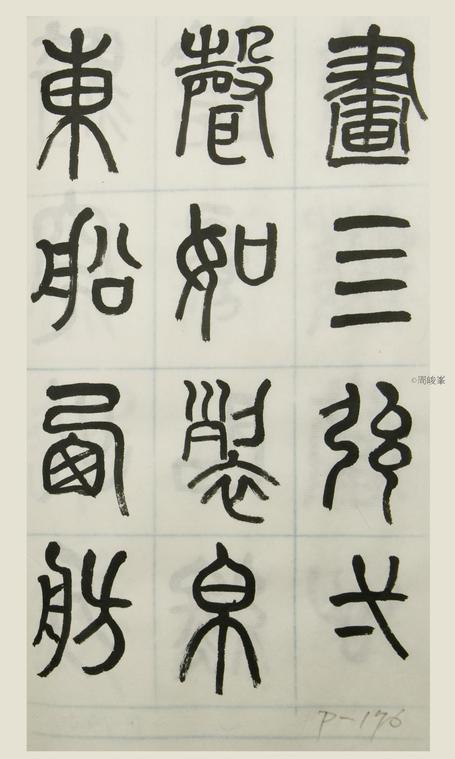 畫亖弦弌
聲如裂帛
東船西舫
©周峻峯
P-176